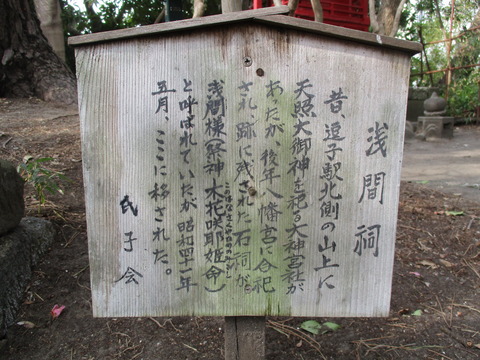 浅間祠
昔、逗子駅北側の山上に
天照大御神を祀る大神宮社が
あったが、後年八幡宮に合祀
され、跡に残された石祠が
浅間様(祭神 木花咲耶姫命)
このはなさくやひめのみこと
と呼ばれていたが昭和四十一年
五月、ここに移された。
氏子会